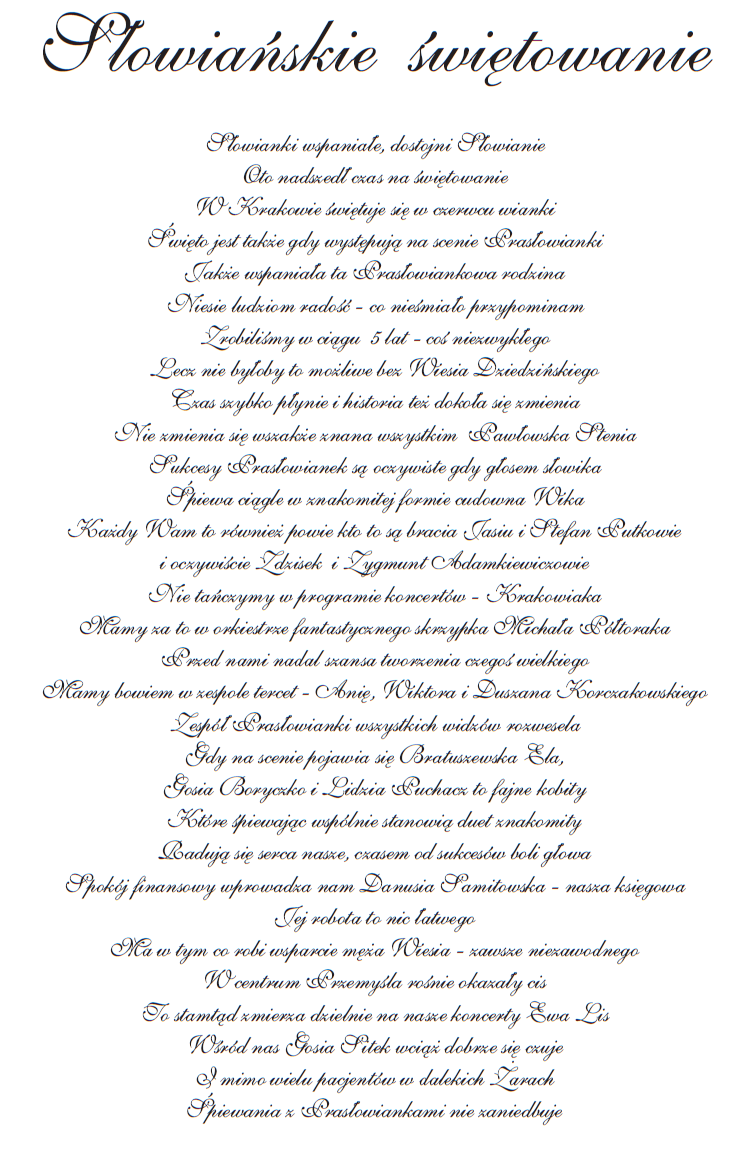 Słowiańskie świętowanie
Słowianki wspaniałe, dostojni Słowianie
Oto nadszedł czas na świętowanie
W Krakowie świętuje się w czerwcu wianki
Święto jest także gdy występują na scenie Prasłowianki
Jakże wspaniała ta Prasłowiankowa rodzina
Niesie ludziom radość - co nieśmiało przypominam
Zrobiliśmy w ciągu 5 lat - coś niezwykłego
Lecz nie byłoby to możliwe bez Wiesia Dziedzińskiego
Czas szybko płynie i historia też dokoła się zmienia
Nie zmienia się wszakże znana wszystkim Pawłowska Stenia
Sukcesy Prasłowianek są oczywiste gdy głosem słowika
Śpiewa ciągle w znakomitej formie cudowna Wika
Każdy Wam to również powie kto to są bracia Jasiu i Stefan Putkowie
i oczywiście Zdzisek i Zygmunt Adamkiewiczowie
Nie tańczymy w programie koncertów - Krakowiaka
Mamy za to w orkiestrze fantastycznego skrzypka Michała Półtoraka
Przed nami nadal szansa tworzenia czegoś wielkiego
Mamy bowiem w zespole tercet - Anię, Wiktora i Duszana Korczakowskiego
Zespół Prasłowianki wszystkich widzów rozwesela
Gdy na scenie pojawia się Bratuszewska Ela,
Gosia Boryczko i Lidzia Puchacz to fajne kobity
Które śpiewając wspólnie stanowią duet znakomity
Radują się serca nasze, czasem od sukcesów boli głowa
Spokój finansowy wprowadza nam Danusia Samitowska - nasza księgowa
Jej robota to nic łatwego
Ma w tym co robi wsparcie męża Wiesia - zawsze niezawodnego
W centrum Przemyśla rośnie okazały cis
To stamtąd zmierza dzielnie na nasze koncerty Ewa Lis
Wśród nas Gosia Sitek wciąż dobrze się czuje
I mimo wielu pacjentów w dalekich Żarach
Śpiewania z Prasłowiankami nie zaniedbuje